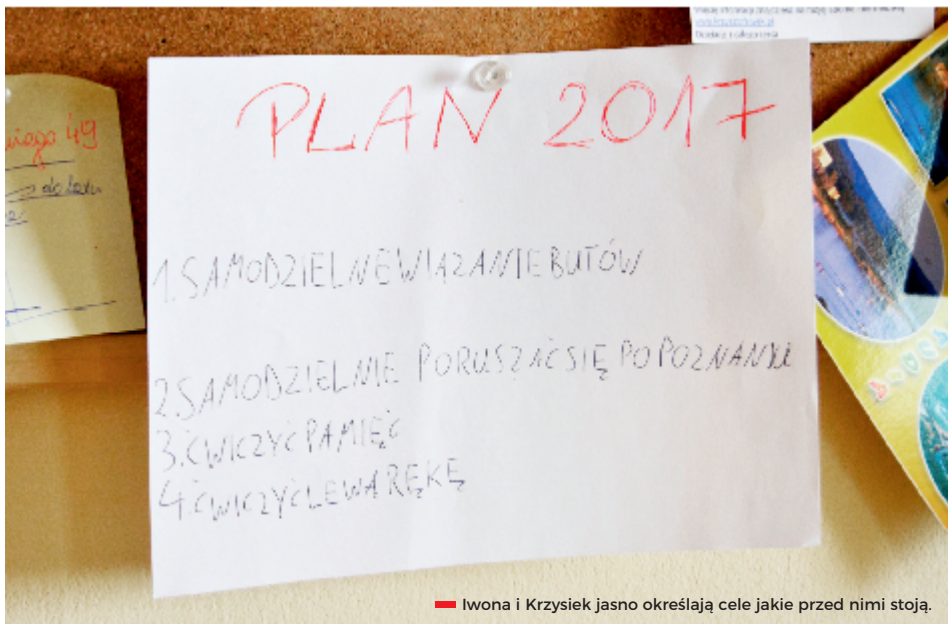 PLAN 2017
1. SAMODZIELNE WIĄZANIE BUTÓW
2. SAMODZIELNIE PORUSZAĆ SIĘ PO POZNANIU
3. ĆWICZYĆ PAMIĘĆ
4. ĆWICZYĆ LEWĄ RĘKĘ
49
Iwona i Krzysiek jasno określają cele jakie przed nimi stoją.